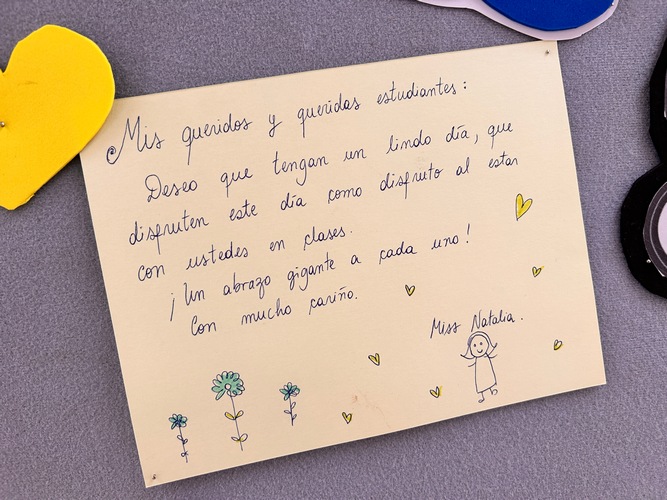 Mis queridos y queridas estudiantes:
Deseo que tengan un lindo día, que
disfruten este día como disfruto al estar
con ustedes en clases.
¡Un abrazo gigante a cada uno!
Con mucho cariño.
Miss Natalia.